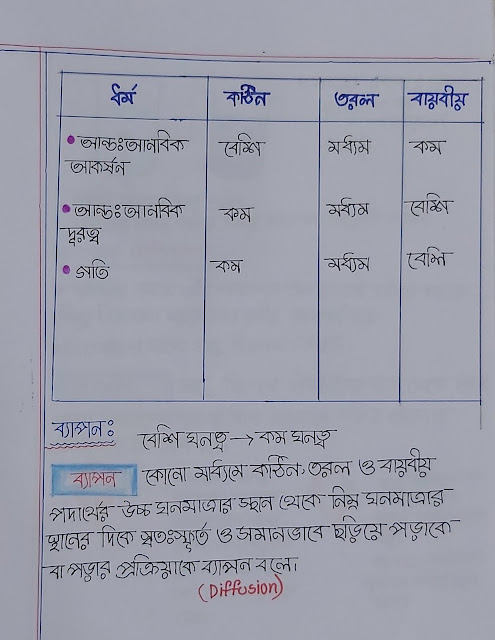 ধর্ম কঠিন তরল বায়বীয়
• আন্তঃআনবিক বেশি মধ্যম কম
আকর্ষন
• আন্তঃআনবিক কম মধ্যম বেশি
দূরত্ব
• গতি কম মধ্যম বেশি
ব্যাপনঃ
বেশি ঘনত্ব → কম ঘনত্ব
ব্যাপন কোনো মাধ্যমে কঠিন, তরল ও বায়বীয়
পদার্থের উচ্চ ঘনমাত্রার স্থান থেকে নিম্ন ঘনমাত্রার
স্থানের দিকে স্বতঃস্ফূর্ত ও সমানভাবে ছড়িয়ে পড়াকে
বা পড়ার প্রক্রিয়াকে ব্যাপন বলে।
(Diffusion)